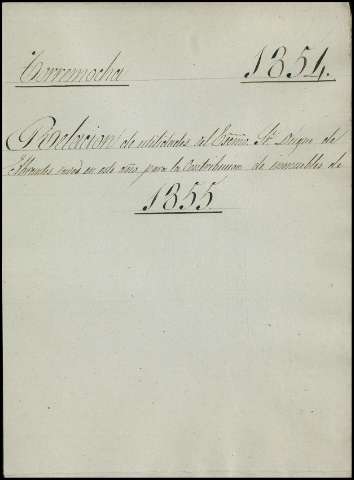 Torremocha 1854.
Relacion de utilidades del Escmo. Sr. Duque de
Abrantes en este año para la Contribucion de inmuebles de
1855